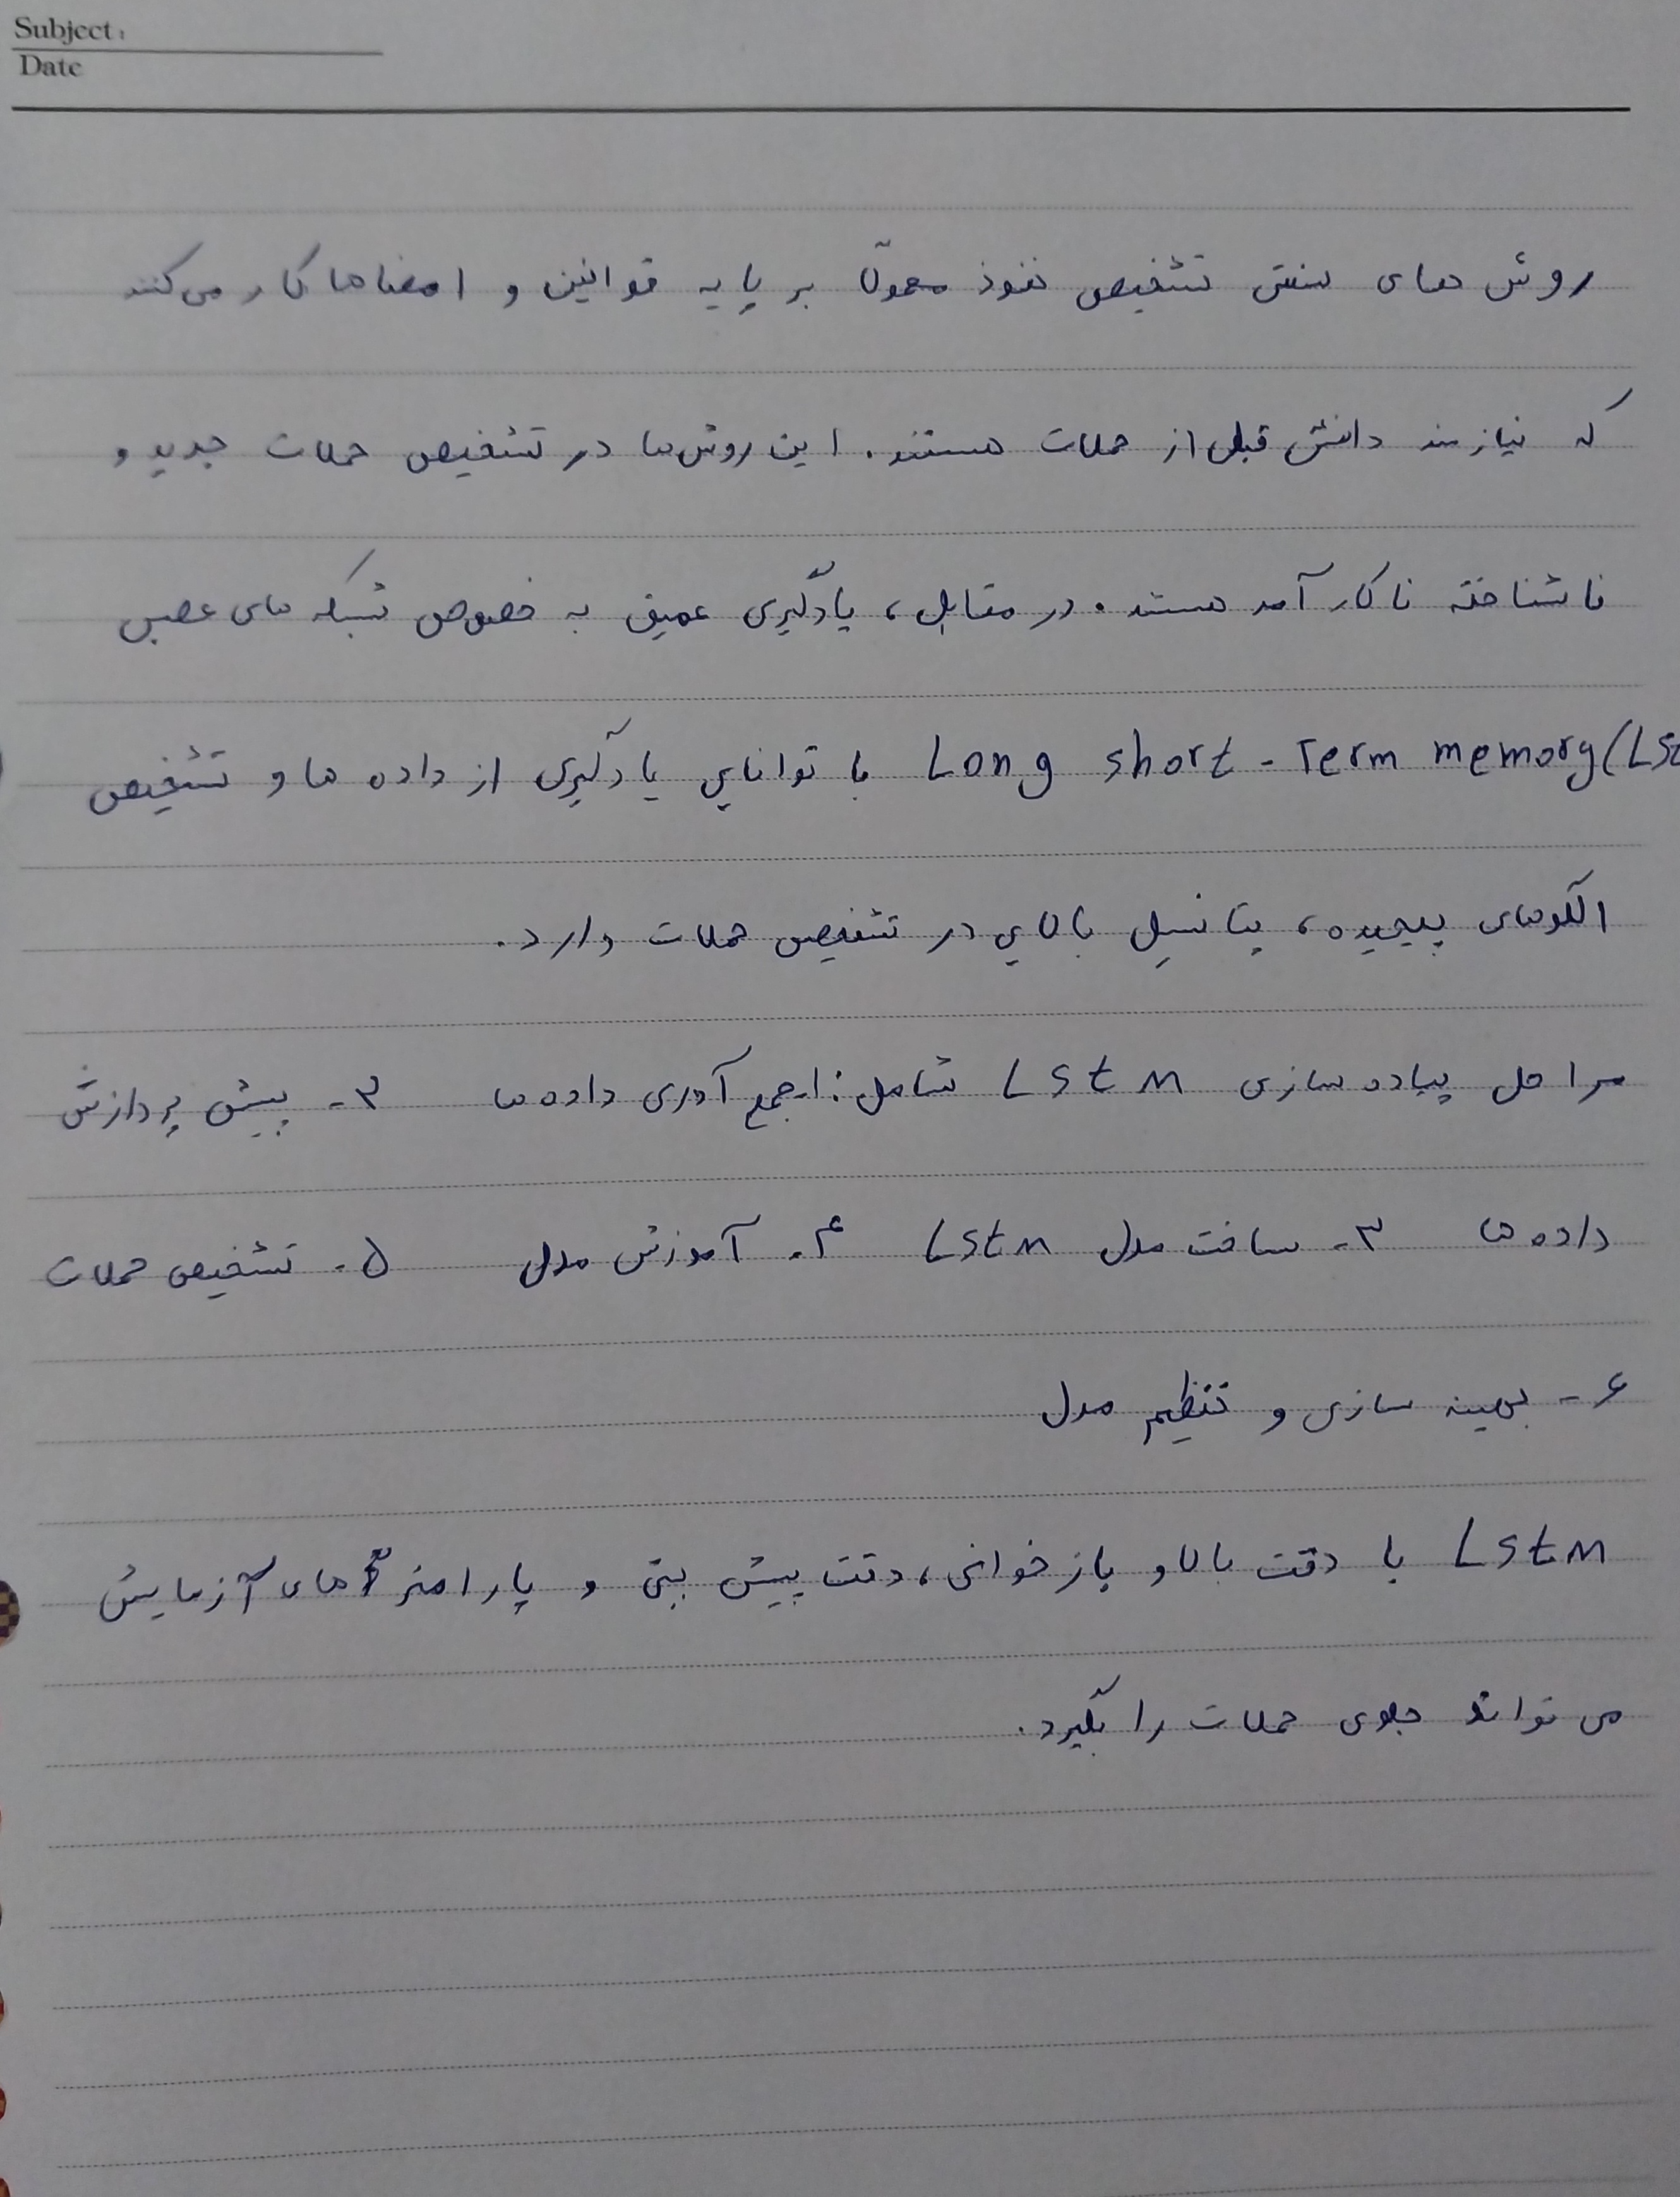 Subject:
Date
روش های سنتی تشخیص نفوذ معمولاً بر پایه قوانین و امضاها کار می‌کنند
که نیازمند دانش قبلی از حملات هستند. این روش‌ها در تشخیص حملات جدید و
ناشناخته ناکارآمد هستند. در مقابل، یادگیری عمیق به خصوص شبکه های عصبی
Long short-Term memory(Lst با توانایی یادگیری از داده ها و تشخیص
الگوهای پیچیده، پتانسیل بالایی در تشخیص حملات دارد.
مراحل پیاده سازی LStM شامل: ۱-جمع آوری داده ها ۲- پیش پردازش
داده ها ۳- ساخت مدل LStM ۴- آموزش مدل ۵- تشخیص حملات
۶- بهینه سازی و تنظیم مدل
LStM با دقت بالا و بازخوانی، دقت پیش بینی و پارامترهای آزمایش
می تواند جلوی حملات را بگیرد.